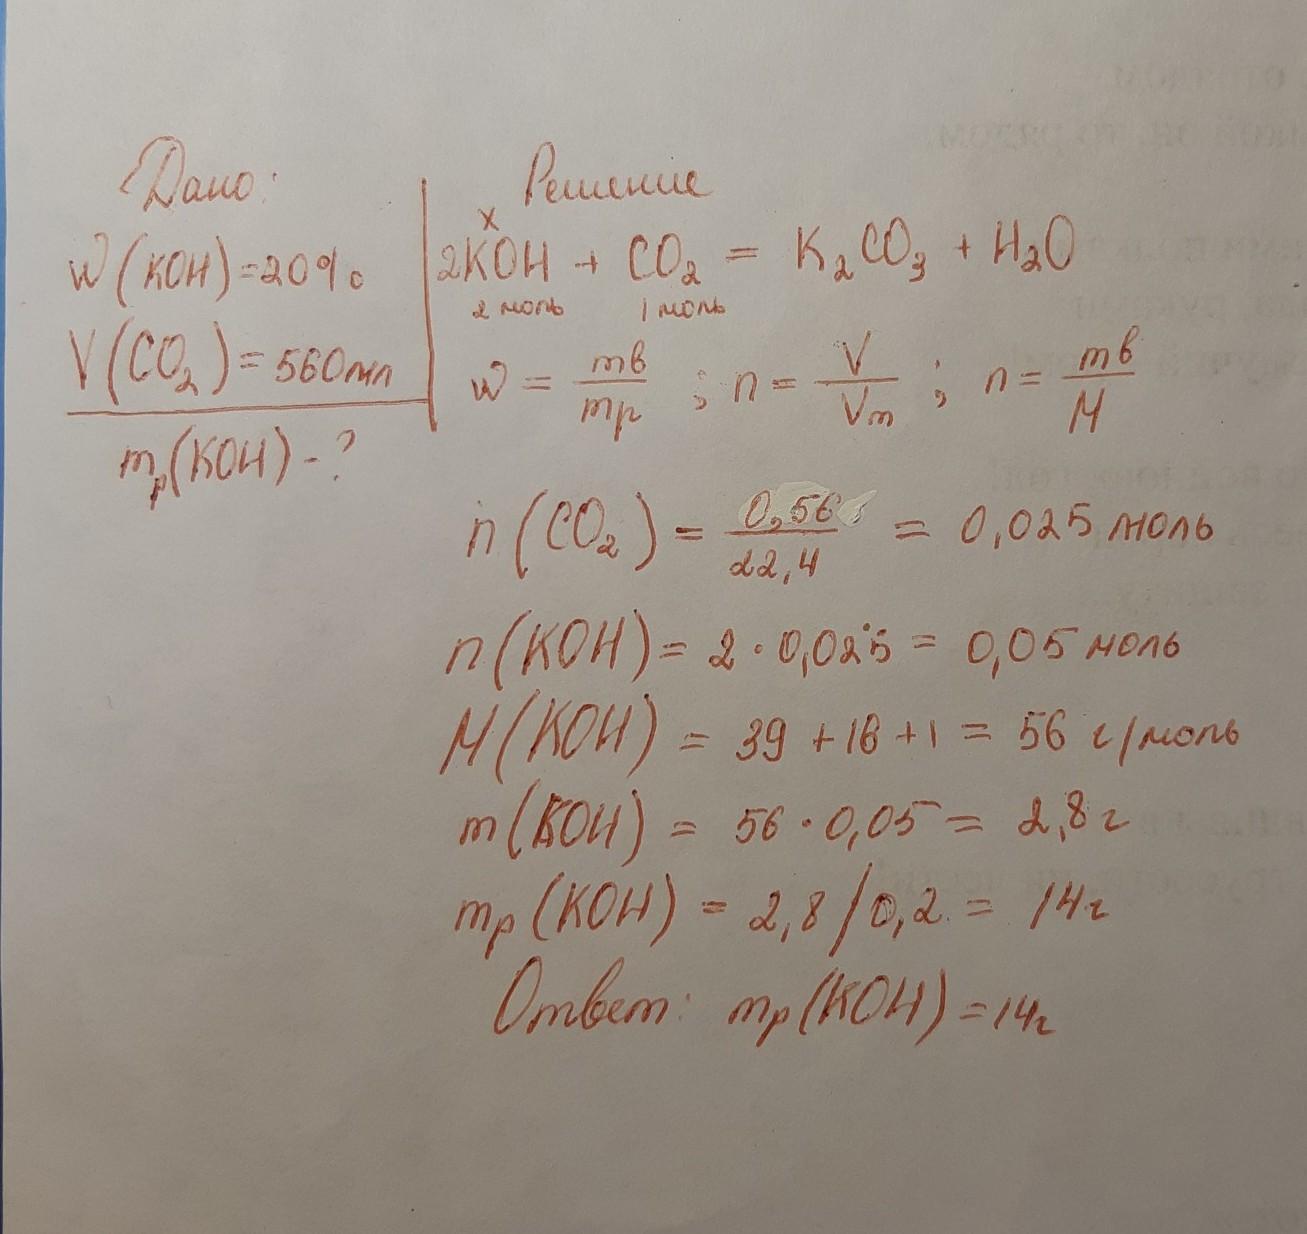 Дано:
W(KOH)=20%
V(CO₂)=560мл
mр(KOH)-?
Решение
x
2KOH + CO₂ = K₂CO₃ + H₂O
2 моль 1 моль
W = mв/mр ; n = V/Vm ; n = mв/M
n(CO₂) = 0,56/22,4 = 0,025 моль
n(KOH) = 2·0,025 = 0,05 моль
M(KOH) = 39+16+1 = 56 г/моль
m(KOH) = 56·0,05 = 2,8 г
mр(KOH) = 2,8/0,2 = 14г
Ответ: mр(KOH)=14г